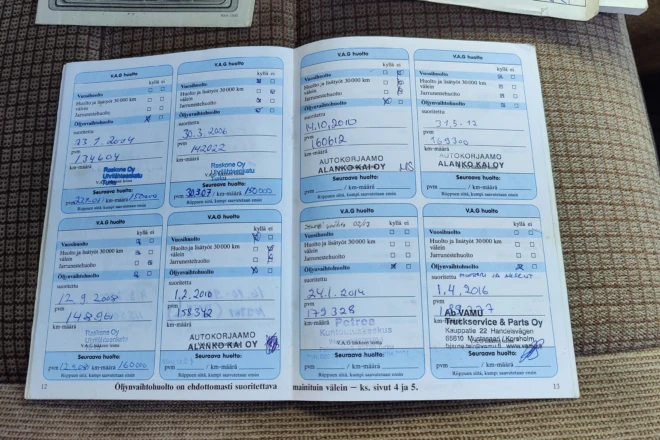 V.A.G huolto
kyllä ei
Vuosihuolto
Huolto ja lisätyöt 30 000 km
välein
Jarrunestehuolto
Öljynvaihtohuolto
suoritettu
pvm
134604
km-määrä
Raskone Oy
V.A.G liikkeen leima
Seuraava huolto:
pvm / km-määrä 150000
Riippuen siitä, kampi saavutetaan ensin
V.A.G huolto
kyllä ei
Vuosihuolto
Huolto ja lisätyöt 30 000 km
välein
Jarrunestehuolto
Öljynvaihtohuolto
suoritettu
30.3.2006
pvm
142022
km-määrä
Raskone Oy
V.A.G liikkeen leima
Seuraava huolto:
pvm 30.3.07 / km-määrä 150 000
Riippuen siitä, kampi saavutetaan ensin
V.A.G huolto
kyllä ei
Vuosihuolto
Huolto ja lisätyöt 30 000 km
välein
Jarrunestehuolto
Öljynvaihtohuolto
suoritettu
14.10.2010
pvm
160612
km-määrä
AUTOKORJAAMO
ALANKO KAI OY
Seuraava huolto:
pvm / km-määrä
Riippuen siitä, kampi saavutetaan ensin
V.A.G huolto
kyllä ei
Vuosihuolto
Huolto ja lisätyöt 30 000 km
välein
Jarrunestehuolto
Öljynvaihtohuolto
suoritettu
31.5.12
pvm
km-määrä
AUTOKORJAAMO
ALANKO KAI OY
Seuraava huolto:
pvm / km-määrä
Riippuen siitä, kampi saavutetaan ensin
V.A.G huolto
kyllä ei
Vuosihuolto
Huolto ja lisätyöt 30 000 km
välein
Jarrunestehuolto
Öljynvaihtohuolto
suoritettu
12.9.2008
pvm
km-määrä
Raskone Oy
V.A.G liikkeen leima
Seuraava huolto:
pvm / km-määrä 160000
Riippuen siitä, kampi saavutetaan ensin
V.A.G huolto
kyllä ei
Vuosihuolto
Huolto ja lisätyöt 30 000 km
välein
Jarrunestehuolto
Öljynvaihtohuolto
suoritettu
1.2.2010
pvm
158342
km-määrä
AUTOKORJAAMO
ALANKO KAI OY
Seuraava huolto:
pvm / km-määrä
Riippuen siitä, kampi saavutetaan ensin
V.A.G huolto
kyllä ei
Vuosihuolto
Huolto ja lisätyöt 30 000 km
välein
Jarrunestehuolto
Öljynvaihtohuolto
suoritettu
24.1.2014
pvm
179328
km-määrä
V.A.G liikkeen leima
Seuraava huolto:
pvm / km-määrä
Riippuen siitä, kampi saavutetaan ensin
V.A.G huolto
kyllä ei
Vuosihuolto
Huolto ja lisätyöt 30 000 km
välein
Jarrunestehuolto
Öljynvaihtohuolto
1.4.2016
pvm
km-määrä
Ab VAMU
Truckservice & Parts Oy
Kauppatie 22 Handelsvägen
65610 Mustasaari / Korsholm
Seuraava huolto:
pvm / km-määrä
Riippuen siitä, kampi saavutetaan ensin
12
Öljynvaihtohuolto on ehdottomasti suoritettava mainituin välein – ks. sivut 4 ja 5.
13